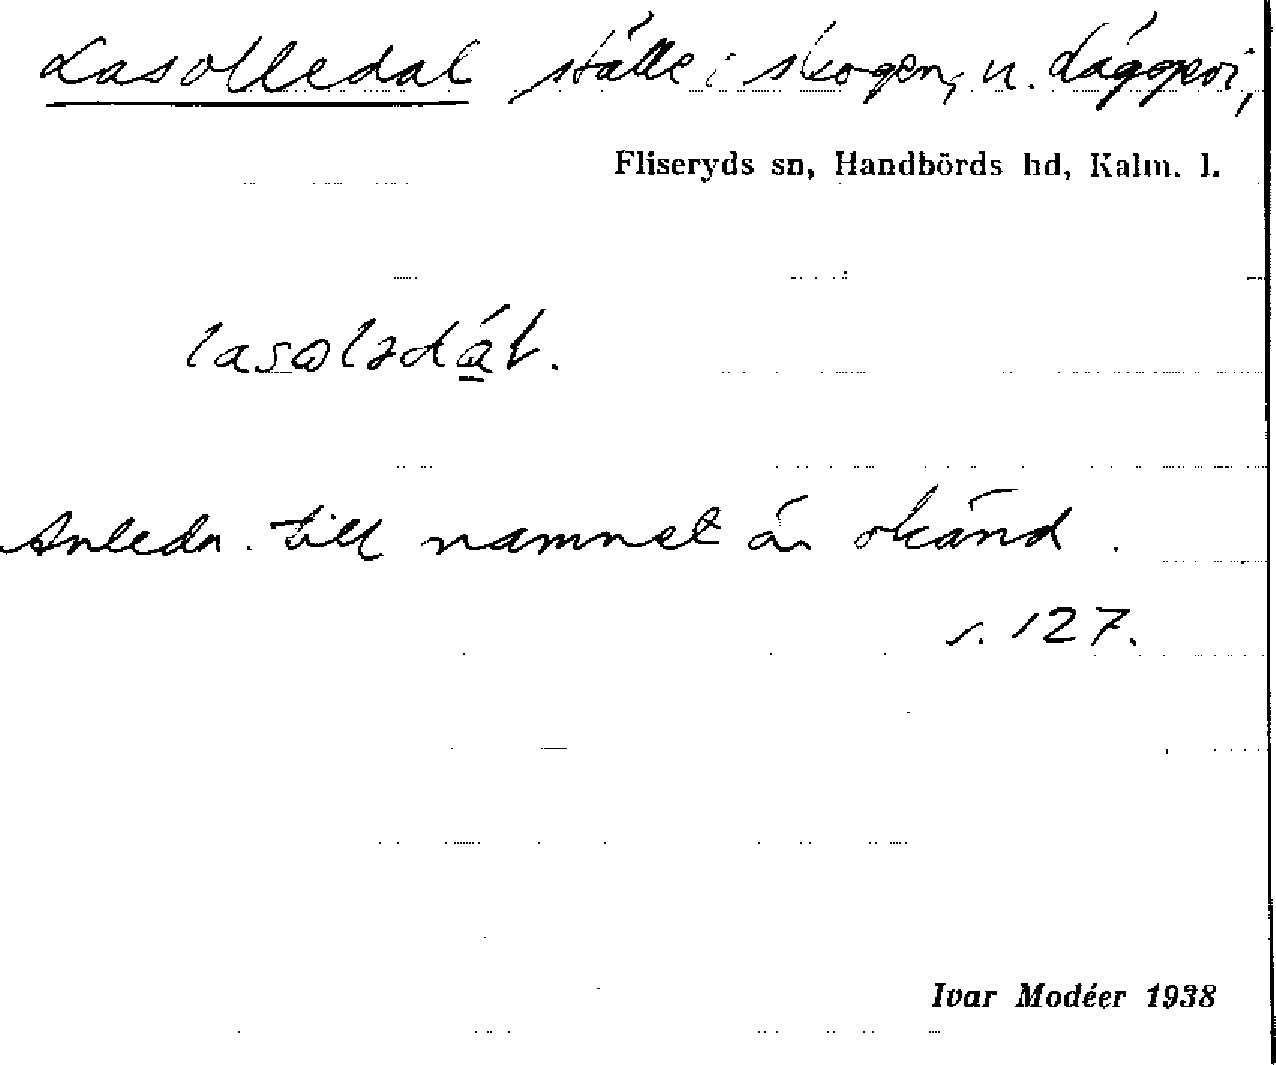 Lasolledal ställe i skogen, u. Läggevi,
Fliseryds sn, Handbörds hd, Kalm. l.
lasolədá̱t.
Anledn. till namnet är okänd.
s. 127.
Ivar Modéer 1938